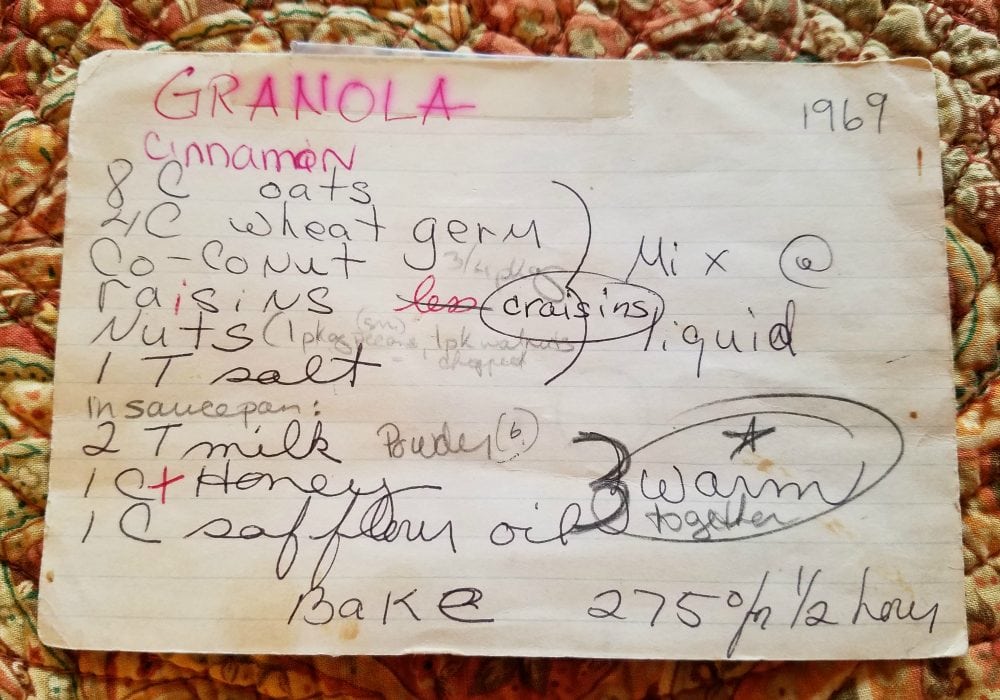 GRANOLA
1969
Cinnamon
8 C oats
4C wheat germ
Co-Conut 3/4 pkg
raisins less craisins
Mix @
liquid
Nuts (1 pkg pecans (sm), 1pk walnuts
chopped
1 T salt
In saucepan:
2 T milk Powder (6)
1 C+ Honey
1 C safflour oil
★
warm
together
Bake 275° for 1/2 hour